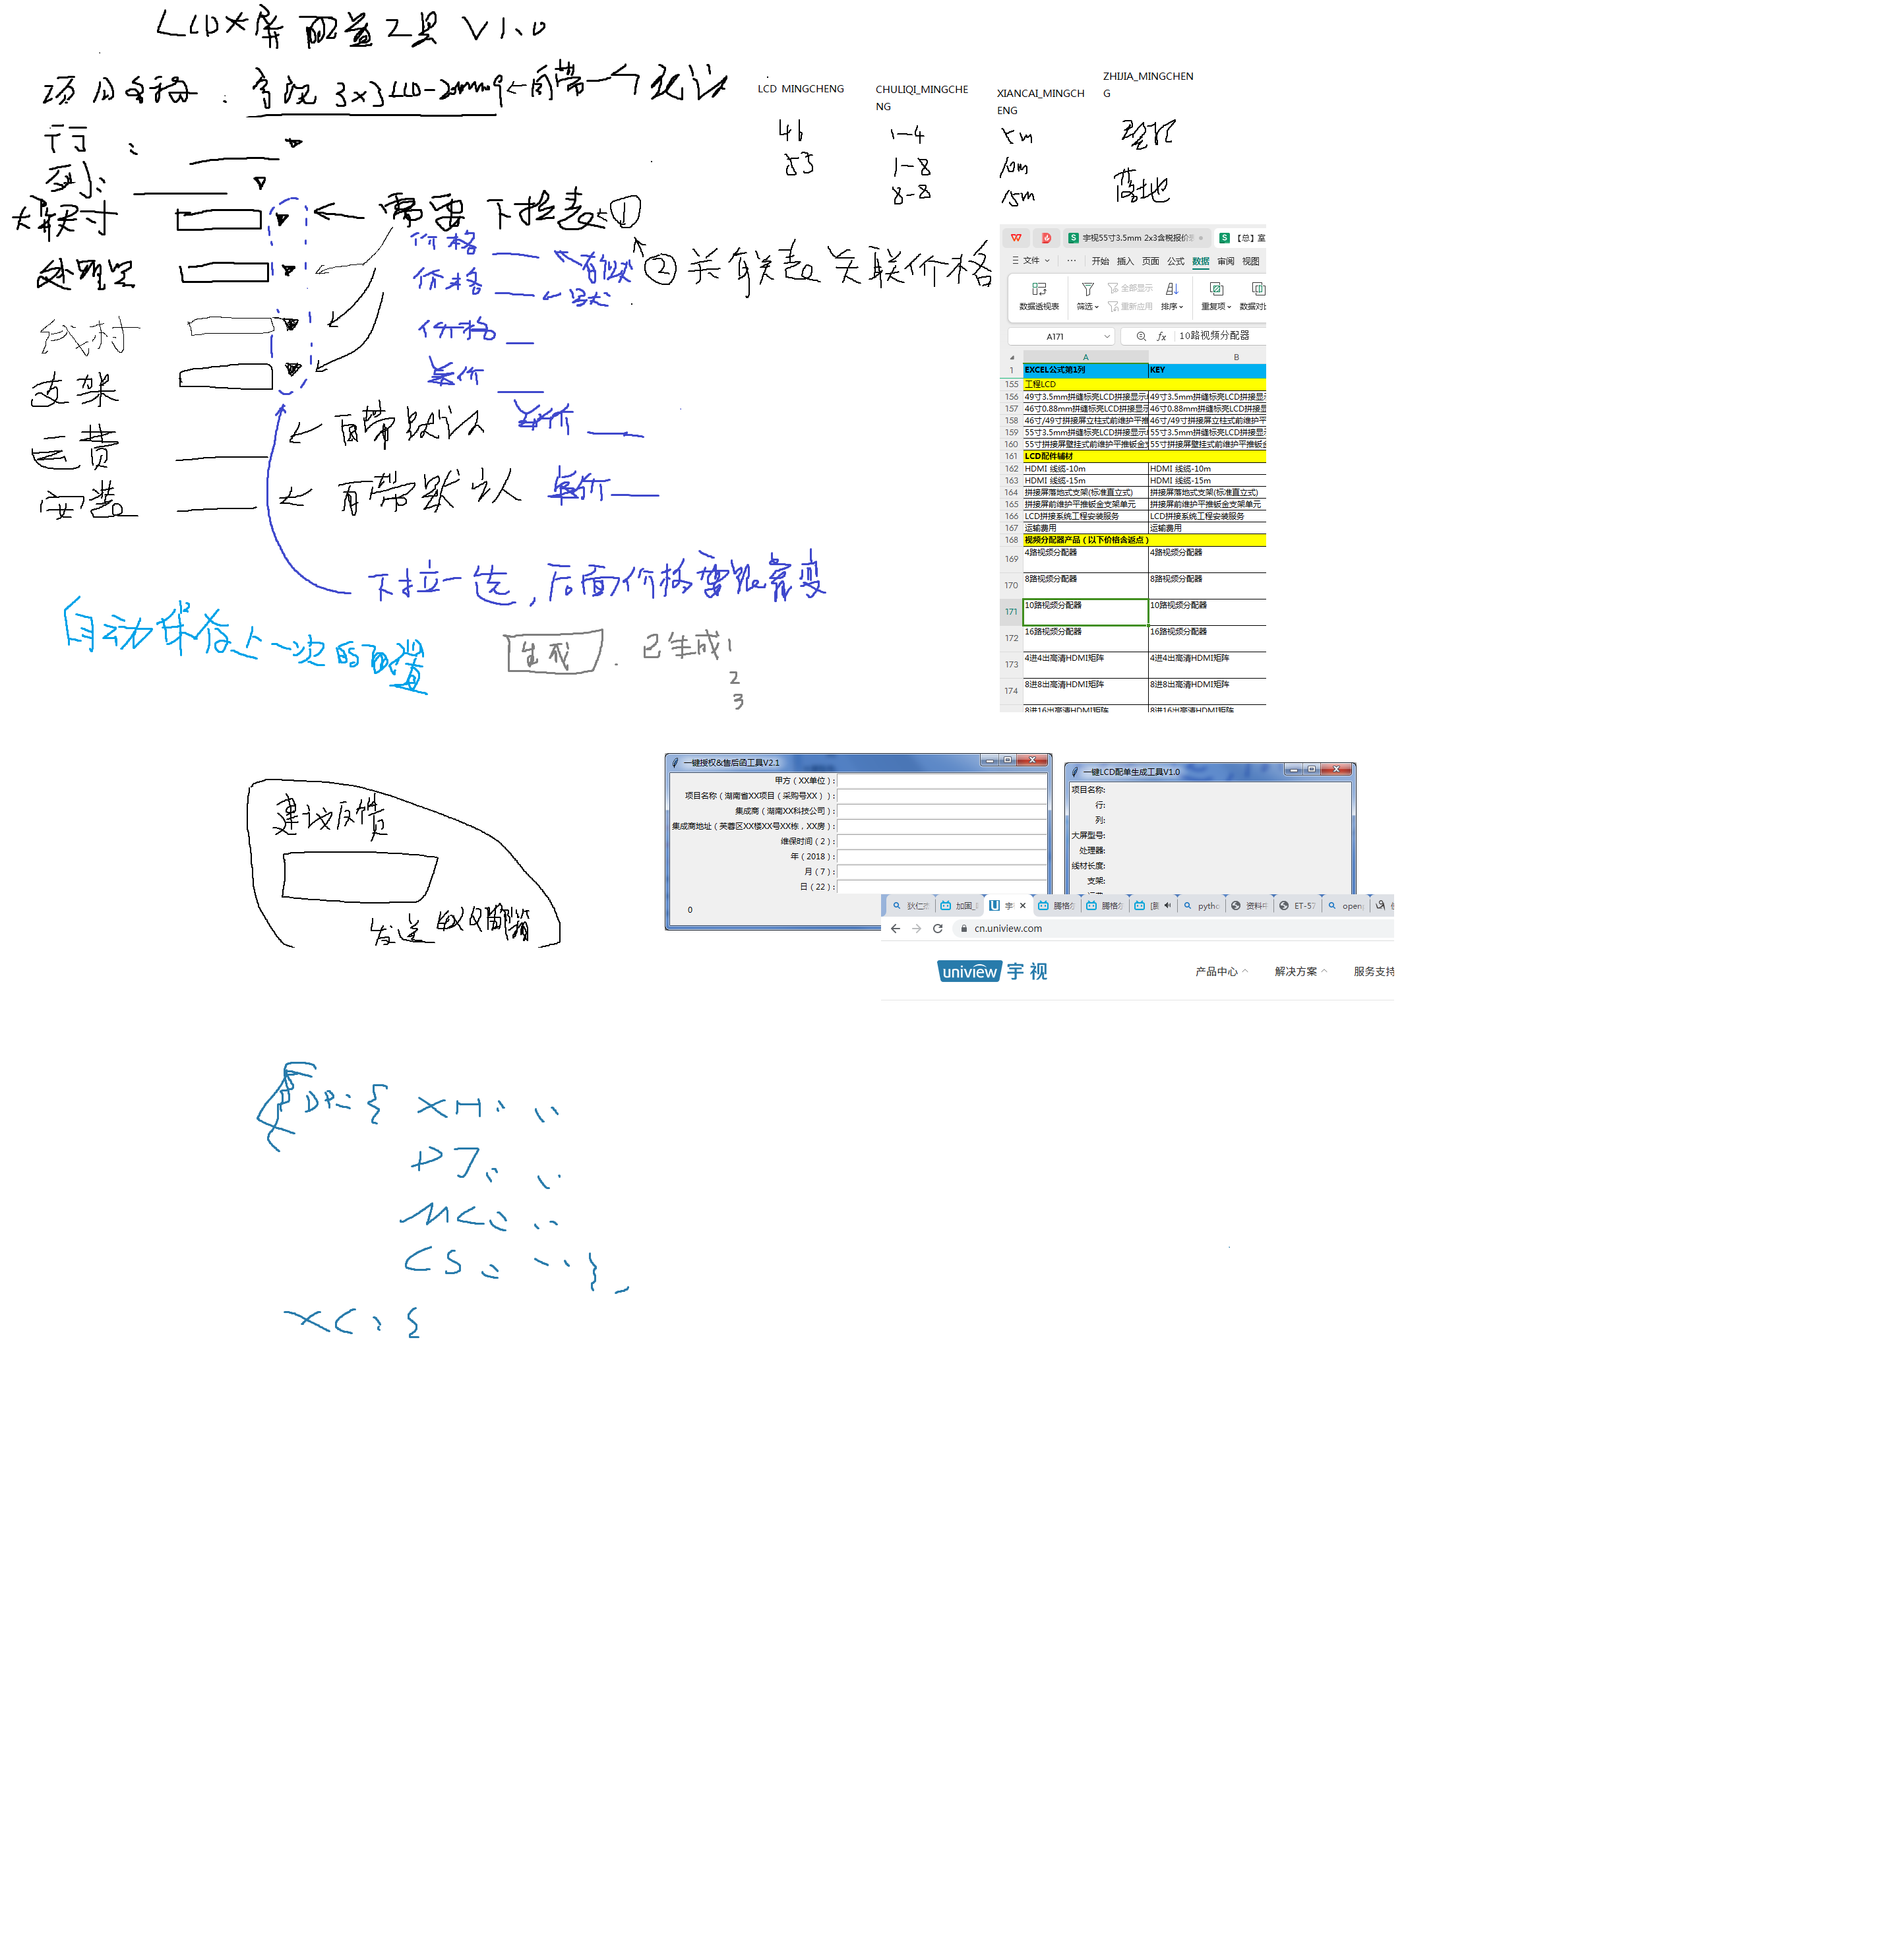 LCD大屏配置工具 V1.0
项目名称：宇视 3x3 LCD-2mm ←自带一个默认
行：
列：
大屏尺寸
←需要下拉表 ①
②关联表 关联价格
处理器
线材
支架
运费
安装
价格
价格
价格
单价
←自带默认 单价
←自带默认 单价
下拉一选，后面价格要跟着变
自动保存上一次的配置
生成
已生成1
2
3
LCD MINGCHENG
CHULIQI_MINGCHE
NG
XIANCAI_MINGCH
ENG
ZHIJIA_MINGCHEN
G
46
55
1-4
1-8
8-8
5m
10m
15m
壁挂
落地
宇视55寸3.5mm 2x3含税报价
【总】室
文件
开始 插入 页面 公式 数据 审阅 视图
数据透视表
筛选
全部显示
重新应用
排序
重复项
数据对比
A171
fx 10路视频分配器
A B
1 EXCEL公式第1列 KEY
155 工程LCD
156 49寸3.5mm拼缝标亮LCD拼接显示 49寸3.5mm拼缝标亮LCD拼接显示
157 46寸0.88mm拼缝标亮LCD拼接显示 46寸0.88mm拼缝标亮LCD拼接显
158 46寸/49寸拼接屏立柱式前维护平推 46寸/49寸拼接屏立柱式前维护平
159 55寸3.5mm拼缝标亮LCD拼接显示 55寸3.5mm拼缝标亮LCD拼接显示
160 55寸拼接屏壁挂式前维护平推钣金支 55寸拼接屏壁挂式前维护平推钣金
161 LCD配件辅材
162 HDMI 线缆-10m HDMI 线缆-10m
163 HDMI 线缆-15m HDMI 线缆-15m
164 拼接屏落地式支架(标准直立式) 拼接屏落地式支架(标准直立式)
165 拼接屏前维护平推钣金支架单元 拼接屏前维护平推钣金支架单元
166 LCD拼接系统工程安装服务 LCD拼接系统工程安装服务
167 运输费用 运输费用
168 视频分配器产品（以下价格含返点）
169 4路视频分配器 4路视频分配器
170 8路视频分配器 8路视频分配器
171 10路视频分配器 10路视频分配器
172 16路视频分配器 16路视频分配器
173 4进4出高清HDMI矩阵 4进4出高清HDMI矩阵
174 8进8出高清HDMI矩阵 8进8出高清HDMI矩阵
8进16出高清HDMI矩阵 8进16出高清HDMI矩阵
建议反馈
发送
一键授权&售后函工具V2.1
甲方（XX单位）:
项目名称（湖南省XX项目（采购号XX））:
集成商（湖南XX科技公司）:
集成商地址（芙蓉区XX楼XX号XX栋，XX房）:
维保时间（2）:
年（2018）:
月（7）:
日（22）:
0
一键LCD配单生成工具V1.0
项目名称:
行:
列:
大屏型号:
处理器:
线材长度:
支架:
狄仁杰
加固_
宇
腾格尔
腾格尔
pytho
资料中
ET-57
open
cn.uniview.com
uniview 宇视
产品中心
解决方案
服务支持
DP:{ XH: ..
PJ: ..
MC: ..
CS: ..},
XC:{